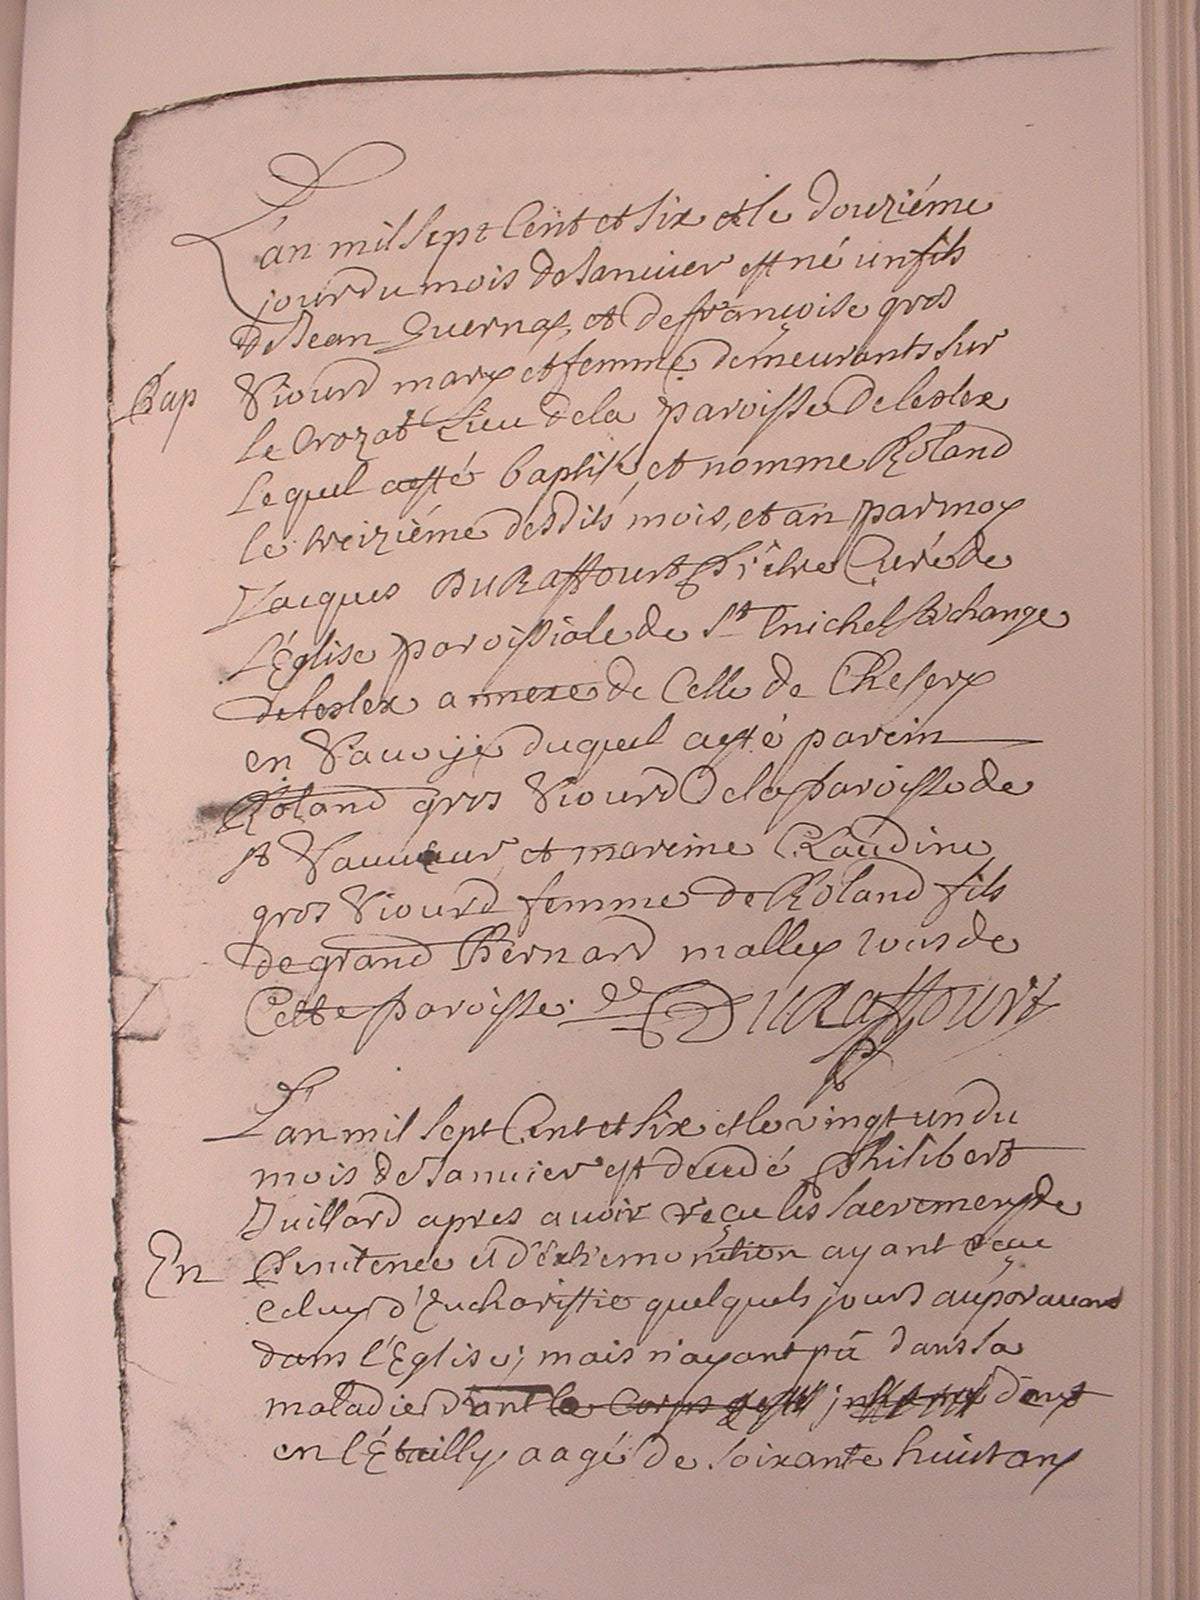 L'an mil sept Cent et six et le douziéme
jour du mois de Janvier est né un fils
de Jean Guernay, et de françoise gros
Bap
Viourd mary et femme demeurants sur
le Crozat Lieu de la paroisse de lelex
lequel a esté baptisé, et nomme Roland
le treiziéme desdits mois, et an par moy
Jacques DuRaffourt Prêtre Curé de
l'Église paroissiale de St michel Archange
de lelex annexe de Celle de Chesery
en Savoije duquel a esté parein
Roland gros Viourd de la paroisse de
st Sauveur, et mareine Claudine
gros Viourd femme de Roland fils
de grand Bernard mallex tous de
Cette paroisse. DuRaffourt
L'an mil sept Cent et six et le vingt un du
mois de Janvier est decedé Philibert
Juillard apres avoir reçu les sacremens de
En
Penitence et d'extremonction ayant reçu
celuy d'Eucharistie quelques jours auparavant
dans l'Eglise; mais n'ayant pû dans la
maladie dont le corps
en l'Etailly aagé de soixante huict ans